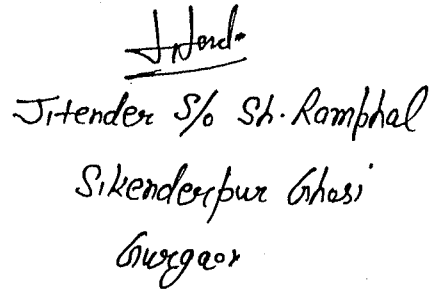 Jitender S/o Sh. Ramphal
Sikenderpur Ghosi
Gurgaon